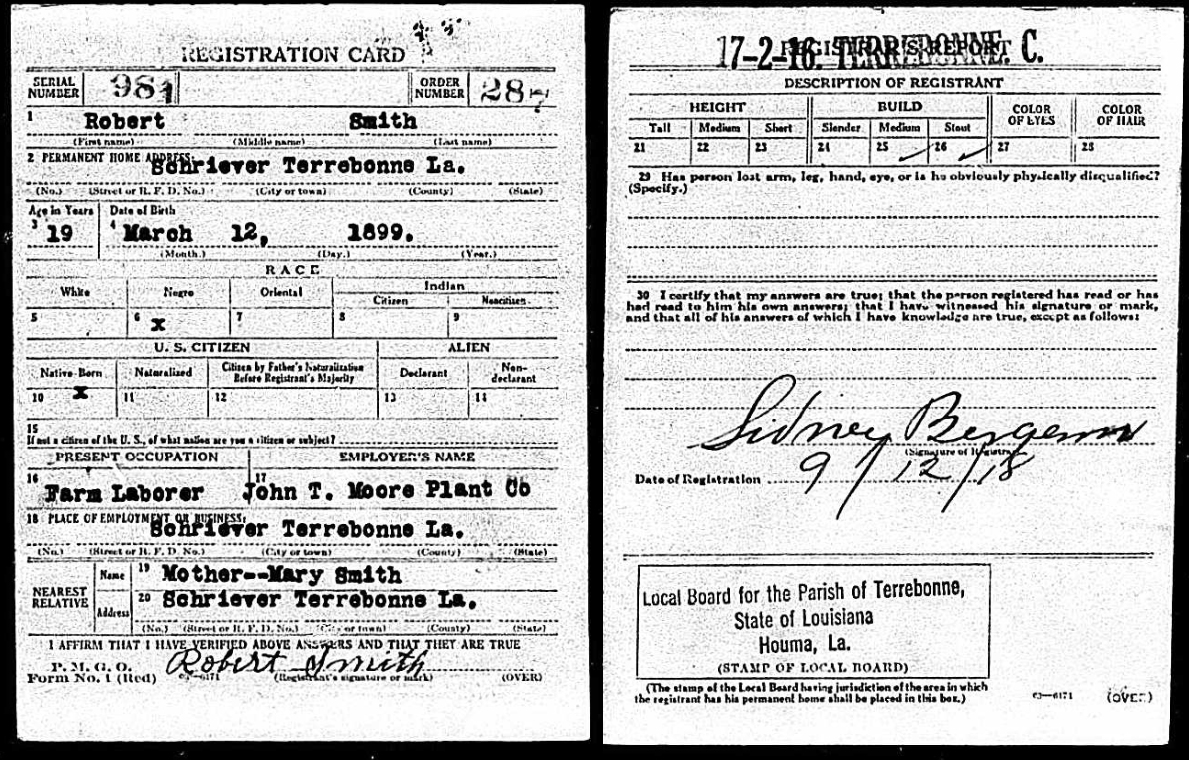 REGISTRATION CARD
SERIAL NUMBER 981 ORDER NUMBER 287
1 Robert Smith
(First name) (Middle name) (Last name)
2 PERMANENT HOME ADDRESS: Schriever Terrebonne La.
(No.) (Street or R. F. D. No.) (City or town) (County) (State)
Age in Years Date of Birth
3 19 4 March 12, 1899.
(Month.) (Day.) (Year.)
RACE
White Negro Oriental Indian
Citizen Noncitizen
5 6 X 7 8 9
U. S. CITIZEN ALIEN
Native Born Naturalized Citizen by Father's Naturalization Before Registrant's Majority Declarant Non-declarant
10 X 11 12 13 14
15
If not a citizen of the U. S., of what nation are you a citizen or subject?
PRESENT OCCUPATION EMPLOYER'S NAME
16 Farm Laborer 17 John T. Moore Plant Co
18 PLACE OF EMPLOYMENT OR BUSINESS: Schriever Terrebonne La.
(No.) (Street or R. F. D. No.) (City or town) (County) (State)
NEAREST RELATIVE Name 19 Mother--Mary Smith
Address 20 Schriever Terrebonne La.
(No.) (Street or R. F. D. No.) (City or town) (County) (State)
I AFFIRM THAT I HAVE VERIFIED ABOVE ANSWERS AND THAT THEY ARE TRUE
P. M. G. O.
Form No. 1 (Red) 03—6171 Robert Smith (Registrant's signature or mark) (OVER)
REGISTRAR'S REPORT
17-2-16. TERREBONNE. C.
DESCRIPTION OF REGISTRANT
HEIGHT BUILD COLOR OF EYES COLOR OF HAIR
Tall Medium Short Slender Medium Stout
21 22 23 24 25 ✓ 26 ✓ 27 28
29 Has person lost arm, leg, hand, eye, or is he obviously physically disqualified?
(Specify.)
30 I certify that my answers are true; that the person registered has read or has
had read to him his own answers; that I have witnessed his signature or mark,
and that all of his answers of which I have knowledge are true, except as follows:
Sidney Bergeron
(Signature of Registrar)
Date of Registration 9/12/18
Local Board for the Parish of Terrebonne,
State of Louisiana
Houma, La.
(STAMP OF LOCAL BOARD)
(The stamp of the Local Board having jurisdiction of the area in which
the registrant has his permanent home shall be placed in this box.)
03—6171 (OVER)